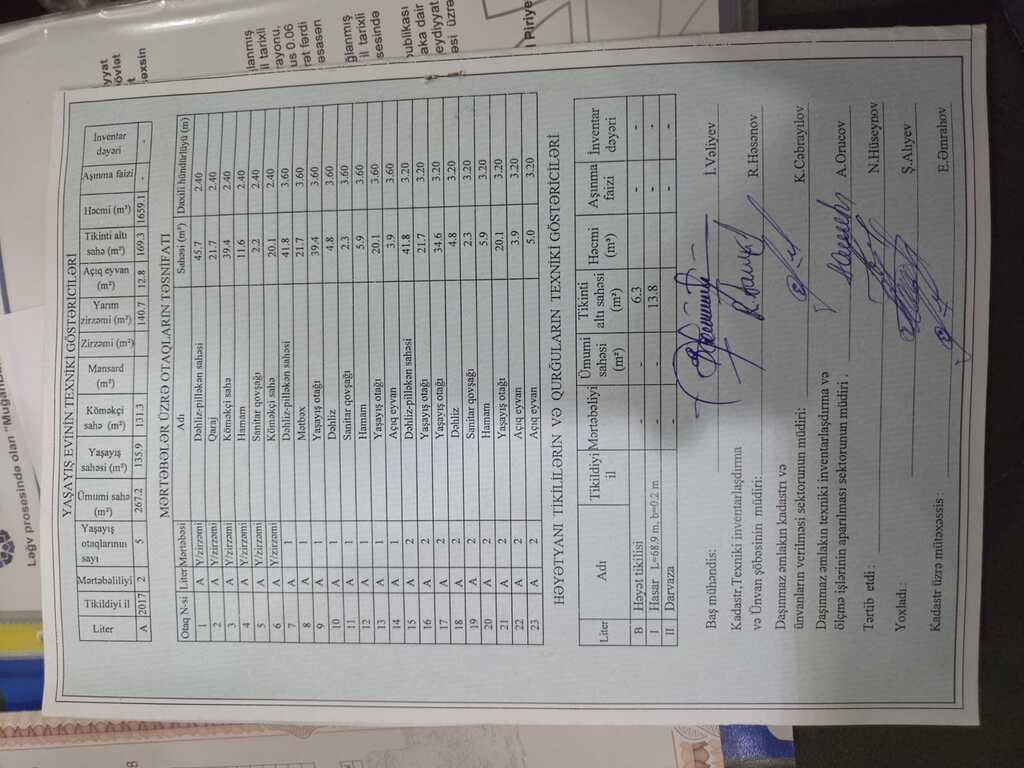 YAŞAYIŞ EVİNİN TEXNİKİ GÖSTƏRİCİLƏRİ
Liter Tikildiyi il Mərtəbəliliyi Yaşayış otaqlarının sayı Ümumi sahə (m²) Yaşayış sahəsi (m²) Köməkçi sahə (m²) Mansard (m²) Zirzəmi (m²) Yarım zirzəmi (m²) Açıq eyvan (m²) Tikinti altı sahə (m²) Həcmi (m³) Aşınma faizi İnventar dəyəri
A 2017 2 5 267.2 135.9 131.3 140.7 12.8 169.3 1659.1 - -
MƏRTƏBƏLƏR ÜZRƏ OTAQLARIN TƏSNİFATI
Otaq N-si Liter Mərtəbəsi Adı Sahəsi (m²) Daxili hündürlüyü (m)
1 A Y/zirzəmi Dəhliz-pilləkən sahəsi 45.7 2.40
2 A Y/zirzəmi Qaraj 21.7 2.40
3 A Y/zirzəmi Köməkçi sahə 39.4 2.40
4 A Y/zirzəmi Hamam 11.6 2.40
5 A Y/zirzəmi Sanitar qovşağı 2.2 2.40
6 A Y/zirzəmi Köməkçi sahə 20.1 2.40
7 A 1 Dəhliz-pilləkən sahəsi 41.8 3.60
8 A 1 Mətbəx 21.7 3.60
9 A 1 Yaşayış otağı 39.4 3.60
10 A 1 Dəhliz 4.8 3.60
11 A 1 Sanitar qovşağı 2.3 3.60
12 A 1 Hamam 5.9 3.60
13 A 1 Yaşayış otağı 20.1 3.60
14 A 1 Açıq eyvan 3.9 3.60
15 A 2 Dəhliz-pilləkən sahəsi 41.8 3.20
16 A 2 Yaşayış otağı 21.7 3.20
17 A 2 Yaşayış otağı 34.6 3.20
18 A 2 Dəhliz 4.8 3.20
19 A 2 Sanitar qovşağı 2.3 3.20
20 A 2 Hamam 5.9 3.20
21 A 2 Yaşayış otağı 20.1 3.20
22 A 2 Açıq eyvan 3.9 3.20
23 A 2 Açıq eyvan 5.0 3.20
HƏYƏTYANI TİKİLİLƏRİN VƏ QURĞULARIN TEXNİKİ GÖSTƏRİCİLƏRİ
Liter Adı Tikildiyi il Mərtəbəliyi Ümumi sahəsi (m²) Tikinti altı sahəsi (m²) Həcmi (m³) Aşınma faizi İnventar dəyəri
B Həyət tikilisi - - 6.3 - - -
I Hasar L=68.9 m, b=0.2 m - - 13.8 - - -
II Darvaza
Baş mühəndis: İ.Vəliyev
Kadastr,Texniki inventarlaşdırma
və Ünvan şöbəsinin müdiri: R.Həsənov
Daşınmaz əmlakın kadastrı və
ünvanların verilməsi sektorunun müdiri: K.Cəbrayılov
Daşınmaz əmlakın texniki inventarlaşdırma və
ölçmə işlərinin aparılması sektorunun müdiri . A.Orucov
Tərtib etdi : N.Hüseynov
Yoxladı: Ş.Alıyev
Kadastr üzrə mütəxəssis : E.Əmrahov
Ləğv prosesində olan "Muğan